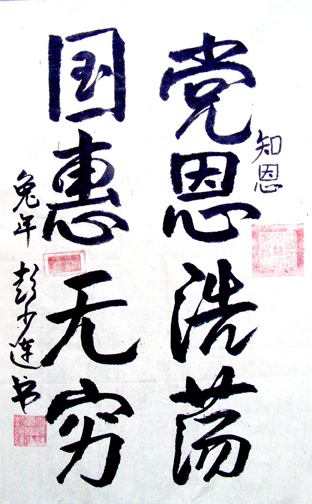 知恩
党恩浩荡
国惠无穷
兔年 彭少连书